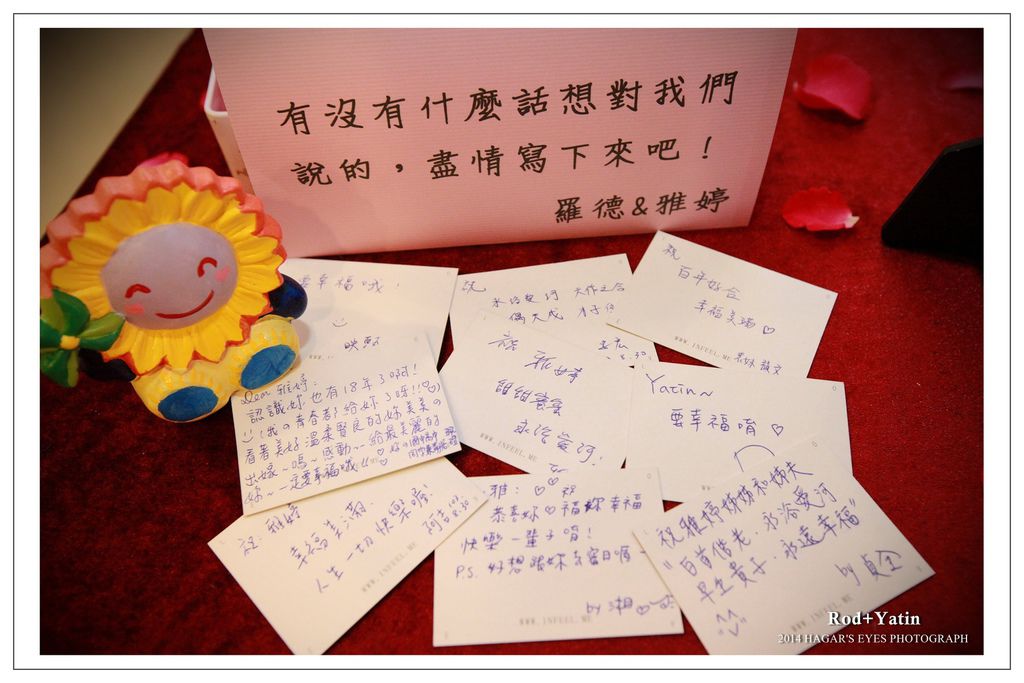 有沒有什麼話想對我們
說的，盡情寫下來吧！
羅德&雅婷
要幸福哦！
祝
永浴愛河 天作之合
偶天成
祝
百年好合
幸福美滿♡
WWW.INFEEL.ME
Dear 雅婷：
認識妳也有18年了啊！
(我の青春都給妳了呀!!♡)
看著美好溫柔賢良的妳美美の
出嫁~嗚~感動~給最美麗的
妳~一定要幸福哦!!
祝
雅婷
甜甜蜜蜜
永浴愛河！
WWW.INFEEL.ME
Yatin~
要幸福唷♡
祝：雅婷
幸福美滿
人生一切快樂喔！
WWW.INFEEL.ME
雅：♡♡
恭喜妳♡ 福妳幸福
快樂一輩子唷！
P.S. 好想跟妳去蜜月喔~
by 湘
WWW.INFEEL.ME
祝雅婷姊姊和姊夫
"百首偕老．永浴愛河
早生貴子．永遠幸福"
by 貞全
WWW.INFEEL.ME
Rod+Yatin
2014 HAGAR'S EYES PHOTOGRAPH